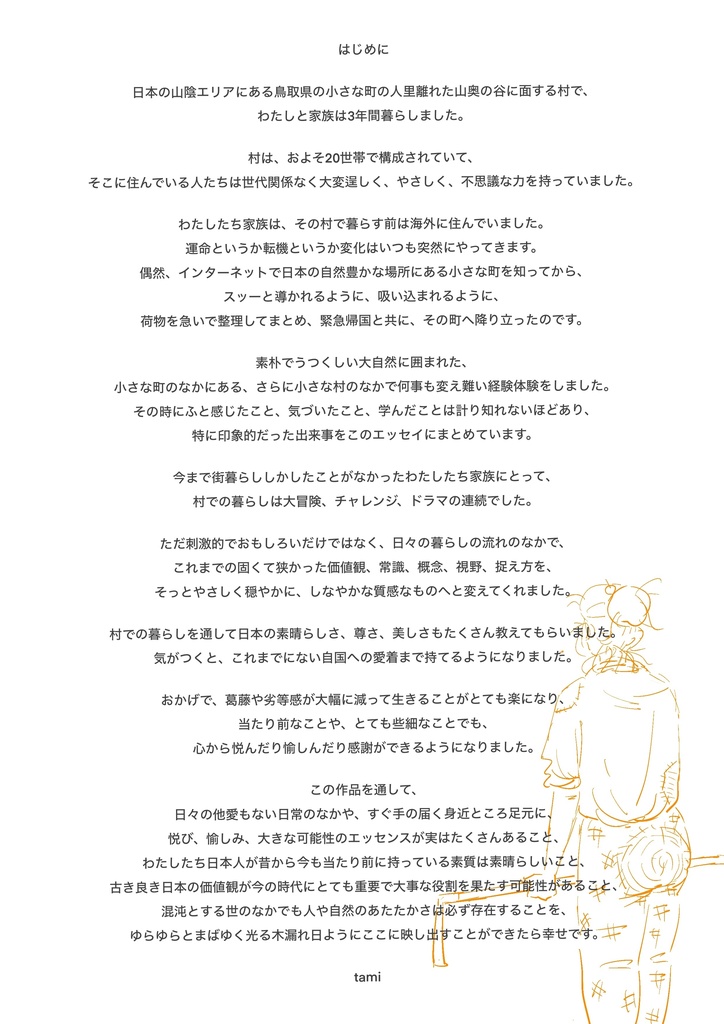 はじめに
日本の山陰エリアにある鳥取県の小さな町の人里離れた山奥の谷に面する村で、
わたしと家族は3年間暮らしました。
村は、およそ20世帯で構成されていて、
そこに住んでいる人たちは世代関係なく大変逞しく、やさしく、不思議な力を持っていました。
わたしたち家族は、その村で暮らす前は海外に住んでいました。
運命というか転機というか変化はいつも突然にやってきます。
偶然、インターネットで日本の自然豊かな場所にある小さな町を知ってから、
スッーと導かれるように、吸い込まれるように、
荷物を急いで整理してまとめ、緊急帰国と共に、その町へ降り立ったのです。
素朴でうつくしい大自然に囲まれた、
小さな町のなかにある、さらに小さな村のなかで何事も変え難い経験体験をしました。
その時にふと感じたこと、気づいたこと、学んだことは計り知れないほどあり、
特に印象的だった出来事をこのエッセイにまとめています。
今まで街暮らししかしたことがなかったわたしたち家族にとって、
村での暮らしは大冒険、チャレンジ、ドラマの連続でした。
ただ刺激的でおもしろいだけではなく、日々の暮らしの流れのなかで、
これまでの固くて狭かった価値観、常識、概念、視野、捉え方を、
そっとやさしく穏やかに、しなやかな質感なものへと変えてくれました。
村での暮らしを通して日本の素晴らしさ、尊さ、美しさもたくさん教えてもらいました。
気がつくと、これまでにない自国への愛着まで持てるようになりました。
おかげで、葛藤や劣等感が大幅に減って生きることがとても楽になり、
当たり前なことや、とても些細なことでも、
心から悦んだり愉しんだり感謝ができるようになりました。
この作品を通して、
日々の他愛もない日常のなかや、すぐ手の届く身近ところ足元に、
悦び、愉しみ、大きな可能性のエッセンスが実はたくさんあること、
わたしたち日本人が昔から今も当たり前に持っている素質は素晴らしいこと、
古き良き日本の価値観が今の時代にとても重要で大事な役割を果たす可能性があること、
混沌とする世のなかでも人や自然のあたたかさは必ず存在することを、
ゆらゆらとまばゆく光る木漏れ日ようにここに映し出すことができたら幸せです。
tami